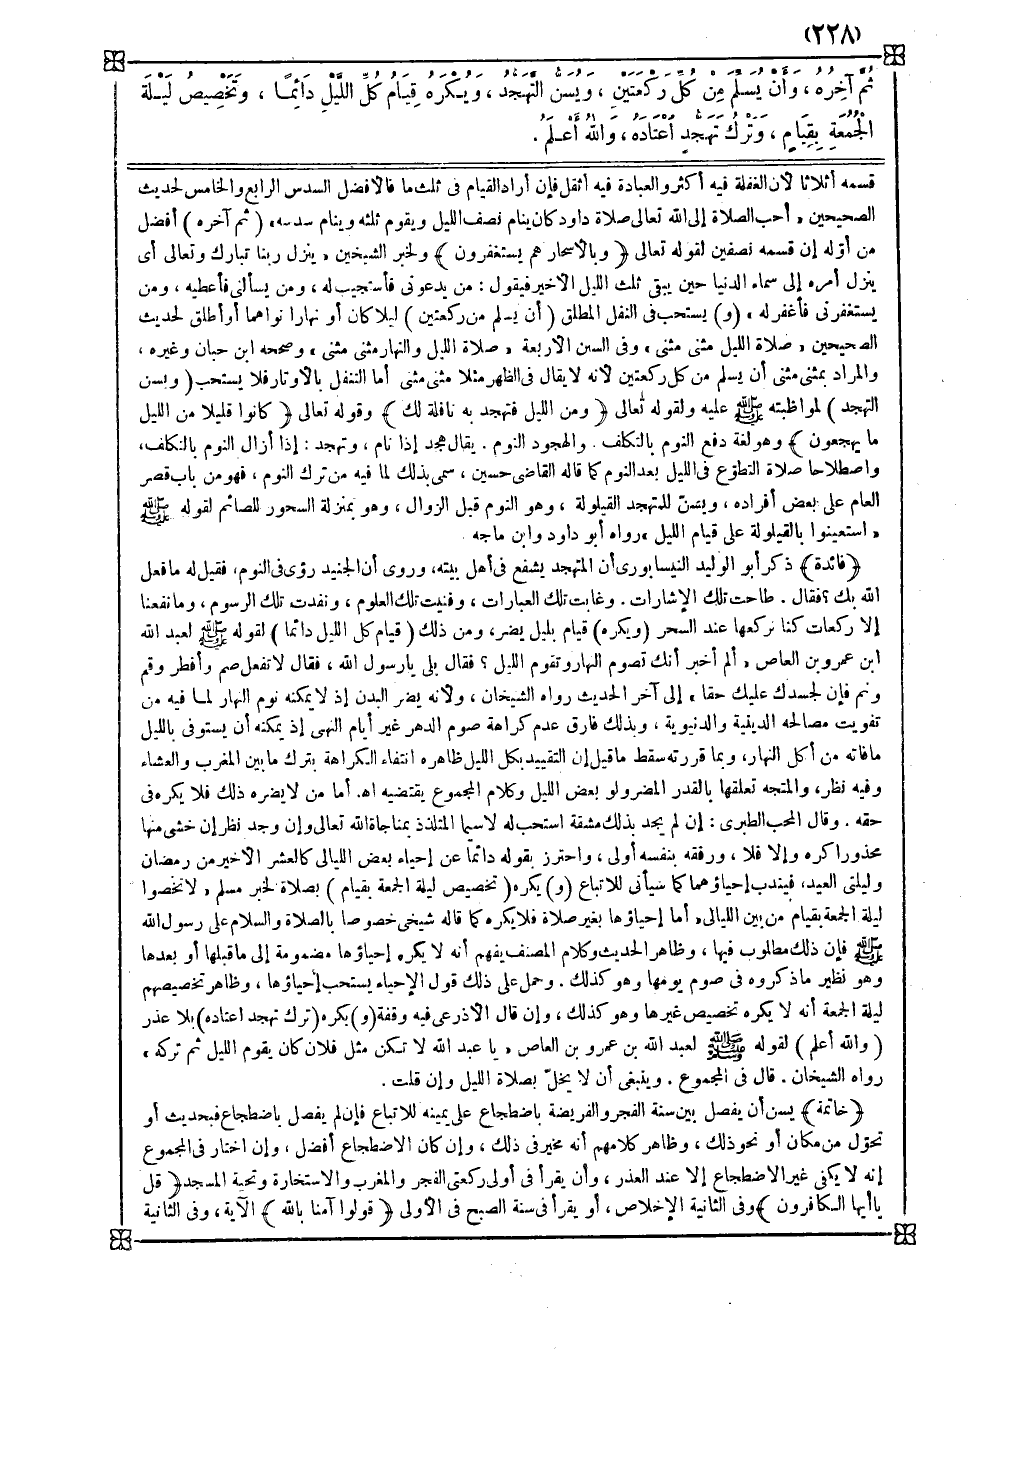 (٢٢٨)
ثُمَّ آخِرُهُ ، وَأَنْ يُسَلِّمَ مِنْ كُلِّ رَكْعَتَيْنِ ، وَيُسَنُّ التَّهَجُّدُ ، وَيُكْرَهُ قِيَامُ كُلِّ اللَّيْلِ دَائِمًا ، وَتَخْصِيصُ لَيْلَةِ
الْجُمُعَةِ بِقِيَامٍ ، وَتَرْكُ تَهَجُّدٍ اعْتَادَهُ ، وَاللهُ أَعْلَمُ .
قسمه أثلاثا لأن الغفلة فيه أكثر والعبادة فيه أثقل فإن أراد القيام فى ثلث ما فالأفضل السدس الرابع والخامس لحديث
الصحيحين « أحب الصلاة إلى الله تعالى صلاة داود كان ينام نصف الليل ويقوم ثلثه وينام سدسه » ( ثم آخره ) أفضل
من أوّله إن قسمه نصفين لقوله تعالى ﴿ وبالأسحار هم يستغفرون ﴾ ولخبر الشيخين « ينزل ربنا تبارك وتعالى أى
ينزل أمره إلى سماء الدنيا حين يبقى ثلث الليل الأخير فيقول : من يدعونى فأستجيب له ، ومن يسألنى فأعطيه ، ومن
يستغفرنى فأغفر له » (و) يستحب فى النفل المطلق ( أن يسلم من ركعتين ) ليلا كان أو نهارا نواهما أو أطلق لحديث
الصحيحين « صلاة الليل مثنى مثنى » وفى السنن الأربعة « صلاة الليل والنهار مثنى مثنى » وصححه ابن حبان وغيره ،
والمراد بمثنى مثنى أن يسلم من كل ركعتين لأنه لا يقال فى الظهر مثلا مثنى مثنى أما التنفل بالأوتار فلا يستحب ( ويسن
التهجد ) لمواظبته ﷺ عليه ولقوله تعالى ﴿ ومن الليل فتهجد به نافلة لك ﴾ وقوله تعالى ﴿ كانوا قليلا من الليل
ما يهجعون ﴾ وهو لغة دفع النوم بالتكلف . والهجود النوم . يقال هجد إذا نام ، وتهجد : إذا أزال النوم بالتكلف،
واصطلاحا صلاة التطوّع فى الليل بعد النوم كما قاله القاضى حسين ، سمى بذلك لما فيه من ترك النوم ، فهو من باب قصر
العام على بعض أفراده ، ويسنّ للمتهجد القيلولة ، وهو النوم قبل الزوال ، وهو بمنزلة السحور للصائم لقوله ﷺ
« استعينوا بالقيلولة على قيام الليل » رواه أبو داود وابن ماجه
﴿ فائدة﴾ ذكر أبو الوليد النيسابورى أن المتهجد يشفع فى أهل بيته، وروى أن الجنيد رؤى فى النوم، فقيل له ما فعل
الله بك ؟ فقال . طاحت تلك الإشارات . وغابت تلك العبارات ، وفنيت تلك العلوم ، ونفدت تلك الرسوم ، وما نفعنا
إلا ركعات كنا نركعها عند السحر (ويكره) قيام بليل يضر، ومن ذلك ( قيام كل الليل دائما ) لقوله ﷺ لعبد الله
ابن عمرو بن العاص « ألم أخبر أنك تصوم النهار وتقوم الليل ؟ فقال بلى يا رسول الله ، فقال لا تفعل صم وأفطر وقم
ونم فإن لجسدك عليك حقا » إلى آخر الحديث رواه الشيخان ، ولأنه يضر البدن إذ لا يمكنه نوم النهار لما فيه من
تفويت مصالحه الدينية والدنيوية ، وبذلك فارق عدم كراهة صوم الدهر غير أيام النهى إذ يمكنه أن يستوفى بالليل
ما فاته من أكل النهار، وبما قررته سقط ما قيل إن التقييد بكل الليل ظاهره انتفاء الكراهة بترك ما بين المغرب والعشاء
وفيه نظر، والمتجه تعلقها بالقدر المضر ولو بعض الليل وكلام المجموع يقتضيه اه. أما من لا يضره ذلك فلا يكره فى
حقه . وقال المحب الطبرى : إن لم يجد بذلك مشقة استحب له لاسيما المتلذذ بمناجاة الله تعالى وإن وجد نظر إن خشى منها
محذورا كره وإلا فلا ، ورفقه بنفسه أولى ، واحترز بقوله دائما عن إحياء بعض الليالى كالعشر الأخير من رمضان
وليلتى العيد، فيندب إحياؤهما كما سيأتى للاتباع (و) يكره ( تخصيص ليلة الجمعة بقيام ) بصلاة لخبر مسلم « لا تخصوا
ليلة الجمعة بقيام من بين الليالى» أما إحياؤها بغير صلاة فلا يكره كما قاله شيخى خصوصا بالصلاة والسلام على رسول الله
ﷺ فإن ذلك مطلوب فيها ، وظاهر الحديث وكلام المصنف يفهم أنه لا يكره إحياؤها مضمومة إلى ما قبلها أو بعدها
وهو نظير ما ذكروه فى صوم يومها وهو كذلك . وحمل على ذلك قول الإحياء يستحب إحياؤها ، وظاهر تخصيصهم
ليلة الجمعة أنه لا يكره تخصيص غيرها وهو كذلك ، وإن قال الأذرعى فيه وقفة (و) يكره ( ترك تهجد اعتاده) بلا عذر
( والله أعلم ) لقوله ﷺ لعبد الله بن عمرو بن العاص « يا عبد الله لا تكن مثل فلان كان يقوم الليل ثم تركه »
رواه الشيخان . قال فى المجموع . وينبغى أن لا يخلّ بصلاة الليل وإن قلت .
﴿ خاتمة﴾ يسن أن يفصل بين سنة الفجر والفريضة باضطجاع على يمينه للاتباع فإن لم يفصل باضطجاع فبحديث أو
تحوّل من مكان أو نحو ذلك ، وظاهر كلامهم أنه مخير فى ذلك ، وإن كان الاضطجاع أفضل ، وإن اختار فى المجموع
إنه لا يكفى غير الاضطجاع إلا عند العذر ، وأن يقرأ فى أولى ركعتى الفجر والمغرب والاستخارة وتحية المسجد ﴿ قل
يا أيها الكافرون ﴾ وفى الثانية الإخلاص، أو يقرأ فى سنة الصبح فى الأولى ﴿ قولوا آمنا بالله ﴾ الآية ، وفى الثانية